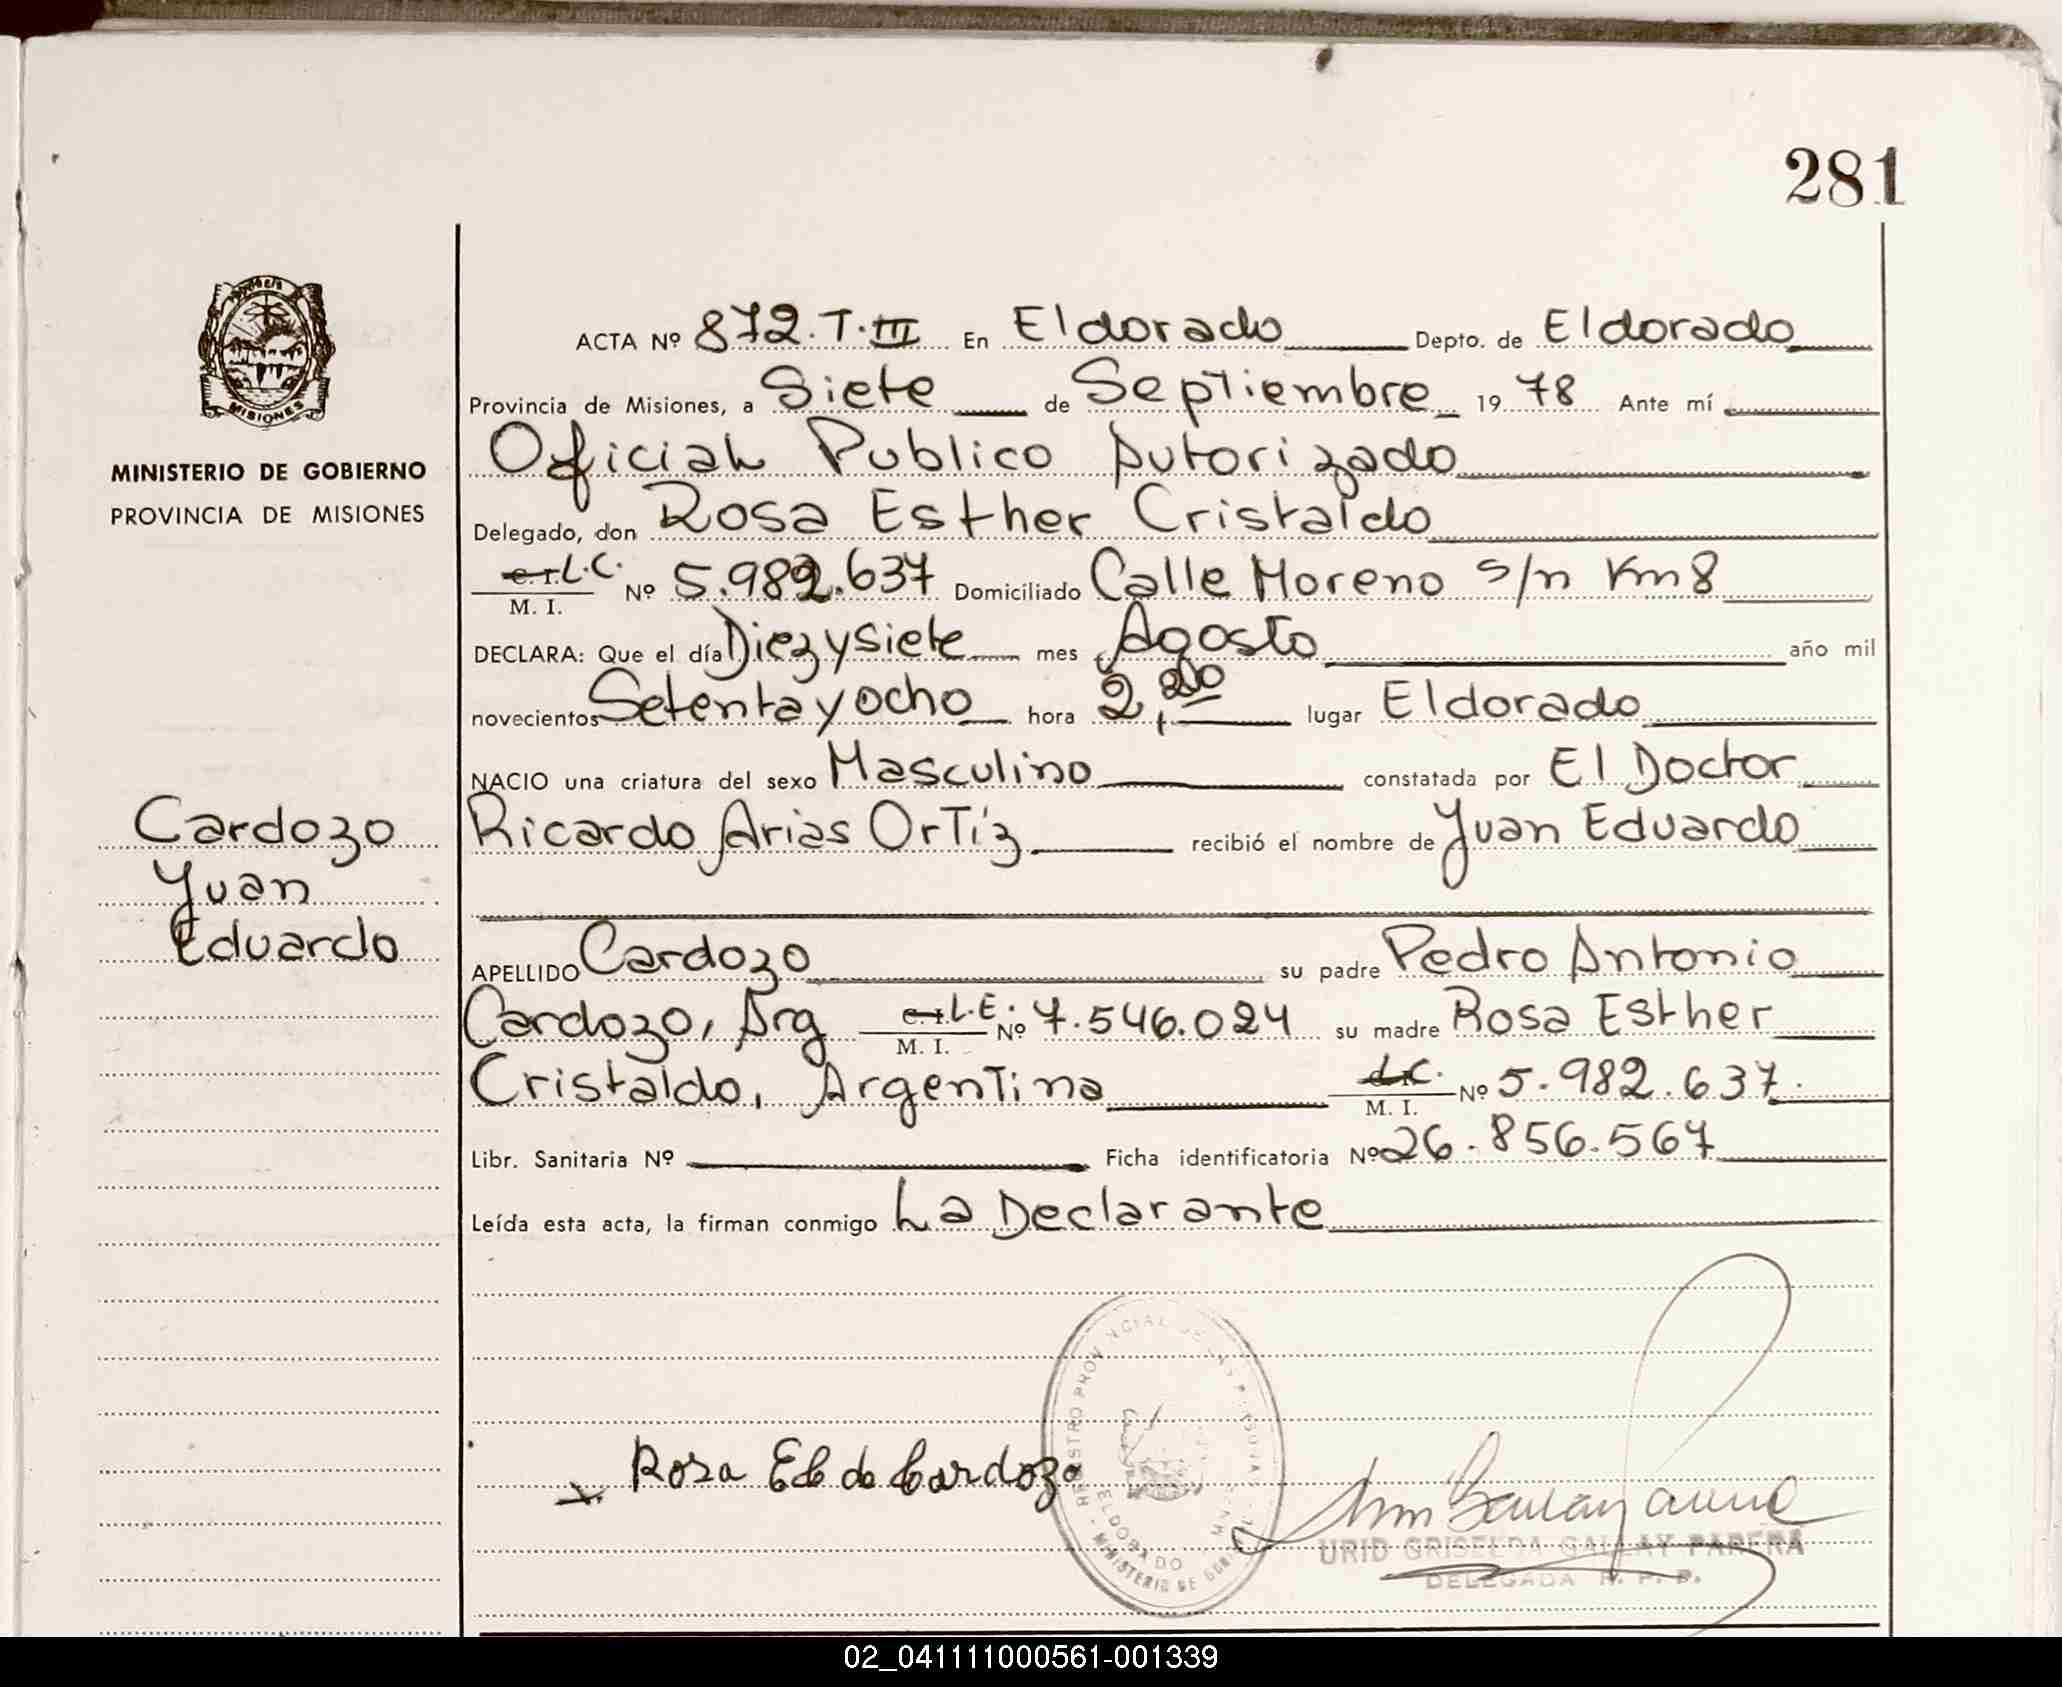 281
ACTA Nº 872.T.III En Eldorado Depto. de Eldorado
Provincia de Misiones, a Siete de Septiembre 19 78 Ante mí
Oficial Publico Autorizado
Delegado, don Rosa Esther Cristaldo
C. I. L.C. Nº 5.982.637 Domiciliado Calle Moreno s/n Km8
M. I.
DECLARA: Que el día Diezysiete mes Agosto año mil
novecientos Setentayocho hora 2,20 lugar Eldorado
NACIO una criatura del sexo Masculino constatada por El Doctor
Ricardo Arias Ortíz recibió el nombre de Yuan Eduardo
APELLIDO Cardozo su padre Pedro Antonio
Cardozo, Arg C. I. L.E. Nº 7.546.024 su madre Rosa Esther
M. I.
Cristaldo, Argentina L.C. Nº 5.982.637.
M. I.
Libr. Sanitaria Nº Ficha identificatoria Nº 26.856.567
Leída esta acta, la firman conmigo La Declarante
MISIONES
MINISTERIO DE GOBIERNO
PROVINCIA DE MISIONES
Cardozo
Yuan
Eduardo
x Rosa E C de Cardozo
ELDORADO
MINISTERIO DE
URID GRISELDA GALLAY PARERA
DELEGADA R. P. P.
02_041111000561-001339